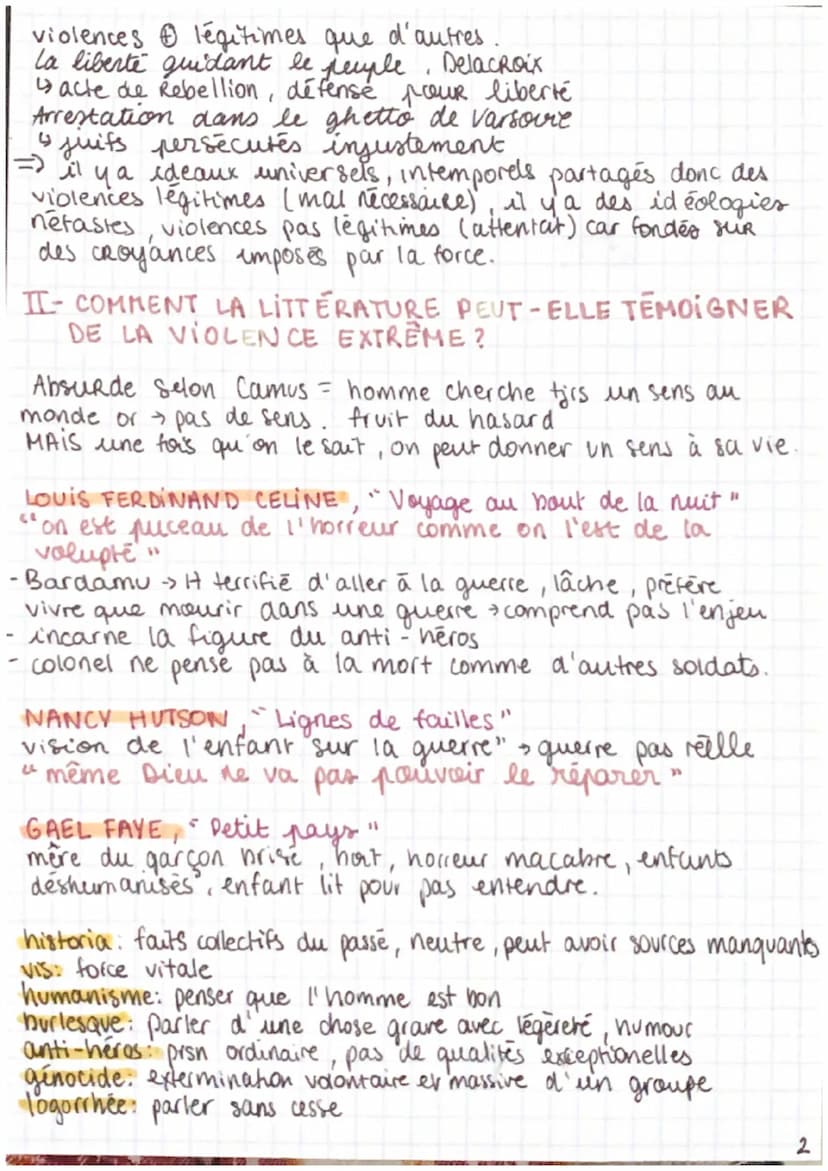 violences ⊕ légitimes que d'autres.
La liberté guidant le peuple, Delacroix
↳ acte de Rebellion, défense pour liberté
Arrestation dans le ghetto de Varsovie
↳ juifs persécutés injustement
=> il y a idéaux universels, intemporels partagés donc des
violences légitimes (mal nécessaire), il y a des idéologies
néfastes, violences pas légitimes (attentat) car fondés sur
des croyances imposés par la force.
II- COMMENT LA LITTÉRATURE PEUT-ELLE TÉMOIGNER
DE LA VIOLENCE EXTRÊME ?
Absurde selon Camus = homme cherche tjrs un sens au
monde or → pas de sens. fruit du hasard
MAIS une fois qu'on le sait, on peut donner un sens à sa vie.
LOUIS FERDINAND CELINE, "Voyage au bout de la nuit"
"on est puceau de l'horreur comme on l'est de la
volupté"
- Bardamu → H terrifié d'aller à la guerre, lâche, préfère
vivre que mourir dans une guerre → comprend pas l'enjeu
- incarne la figure du anti-héros
- colonel ne pense pas à la mort comme d'autres soldats.
NANCY HUTSON, "Lignes de failles"
vision de l'enfant sur la guerre" → guerre pas réelle
"même Dieu ne va pas pouvoir le réparer"
GAEL FAYE, "Petit pays"
mère du garçon brisé, horreur macabre, enfants
déshumanisés, enfant lit pour pas entendre.
historia: faits collectifs du passé, neutre, peut avoir sources manquants
vis: force vitale
humanisme: penser que l'homme est bon
burlesque: parler d'une chose grave avec légèreté, humour
anti-héros: prsn ordinaire, pas de qualités exceptionelles
génocide: extermination volontaire et massive d'un groupe
logorrhée: parler sans cesse
2